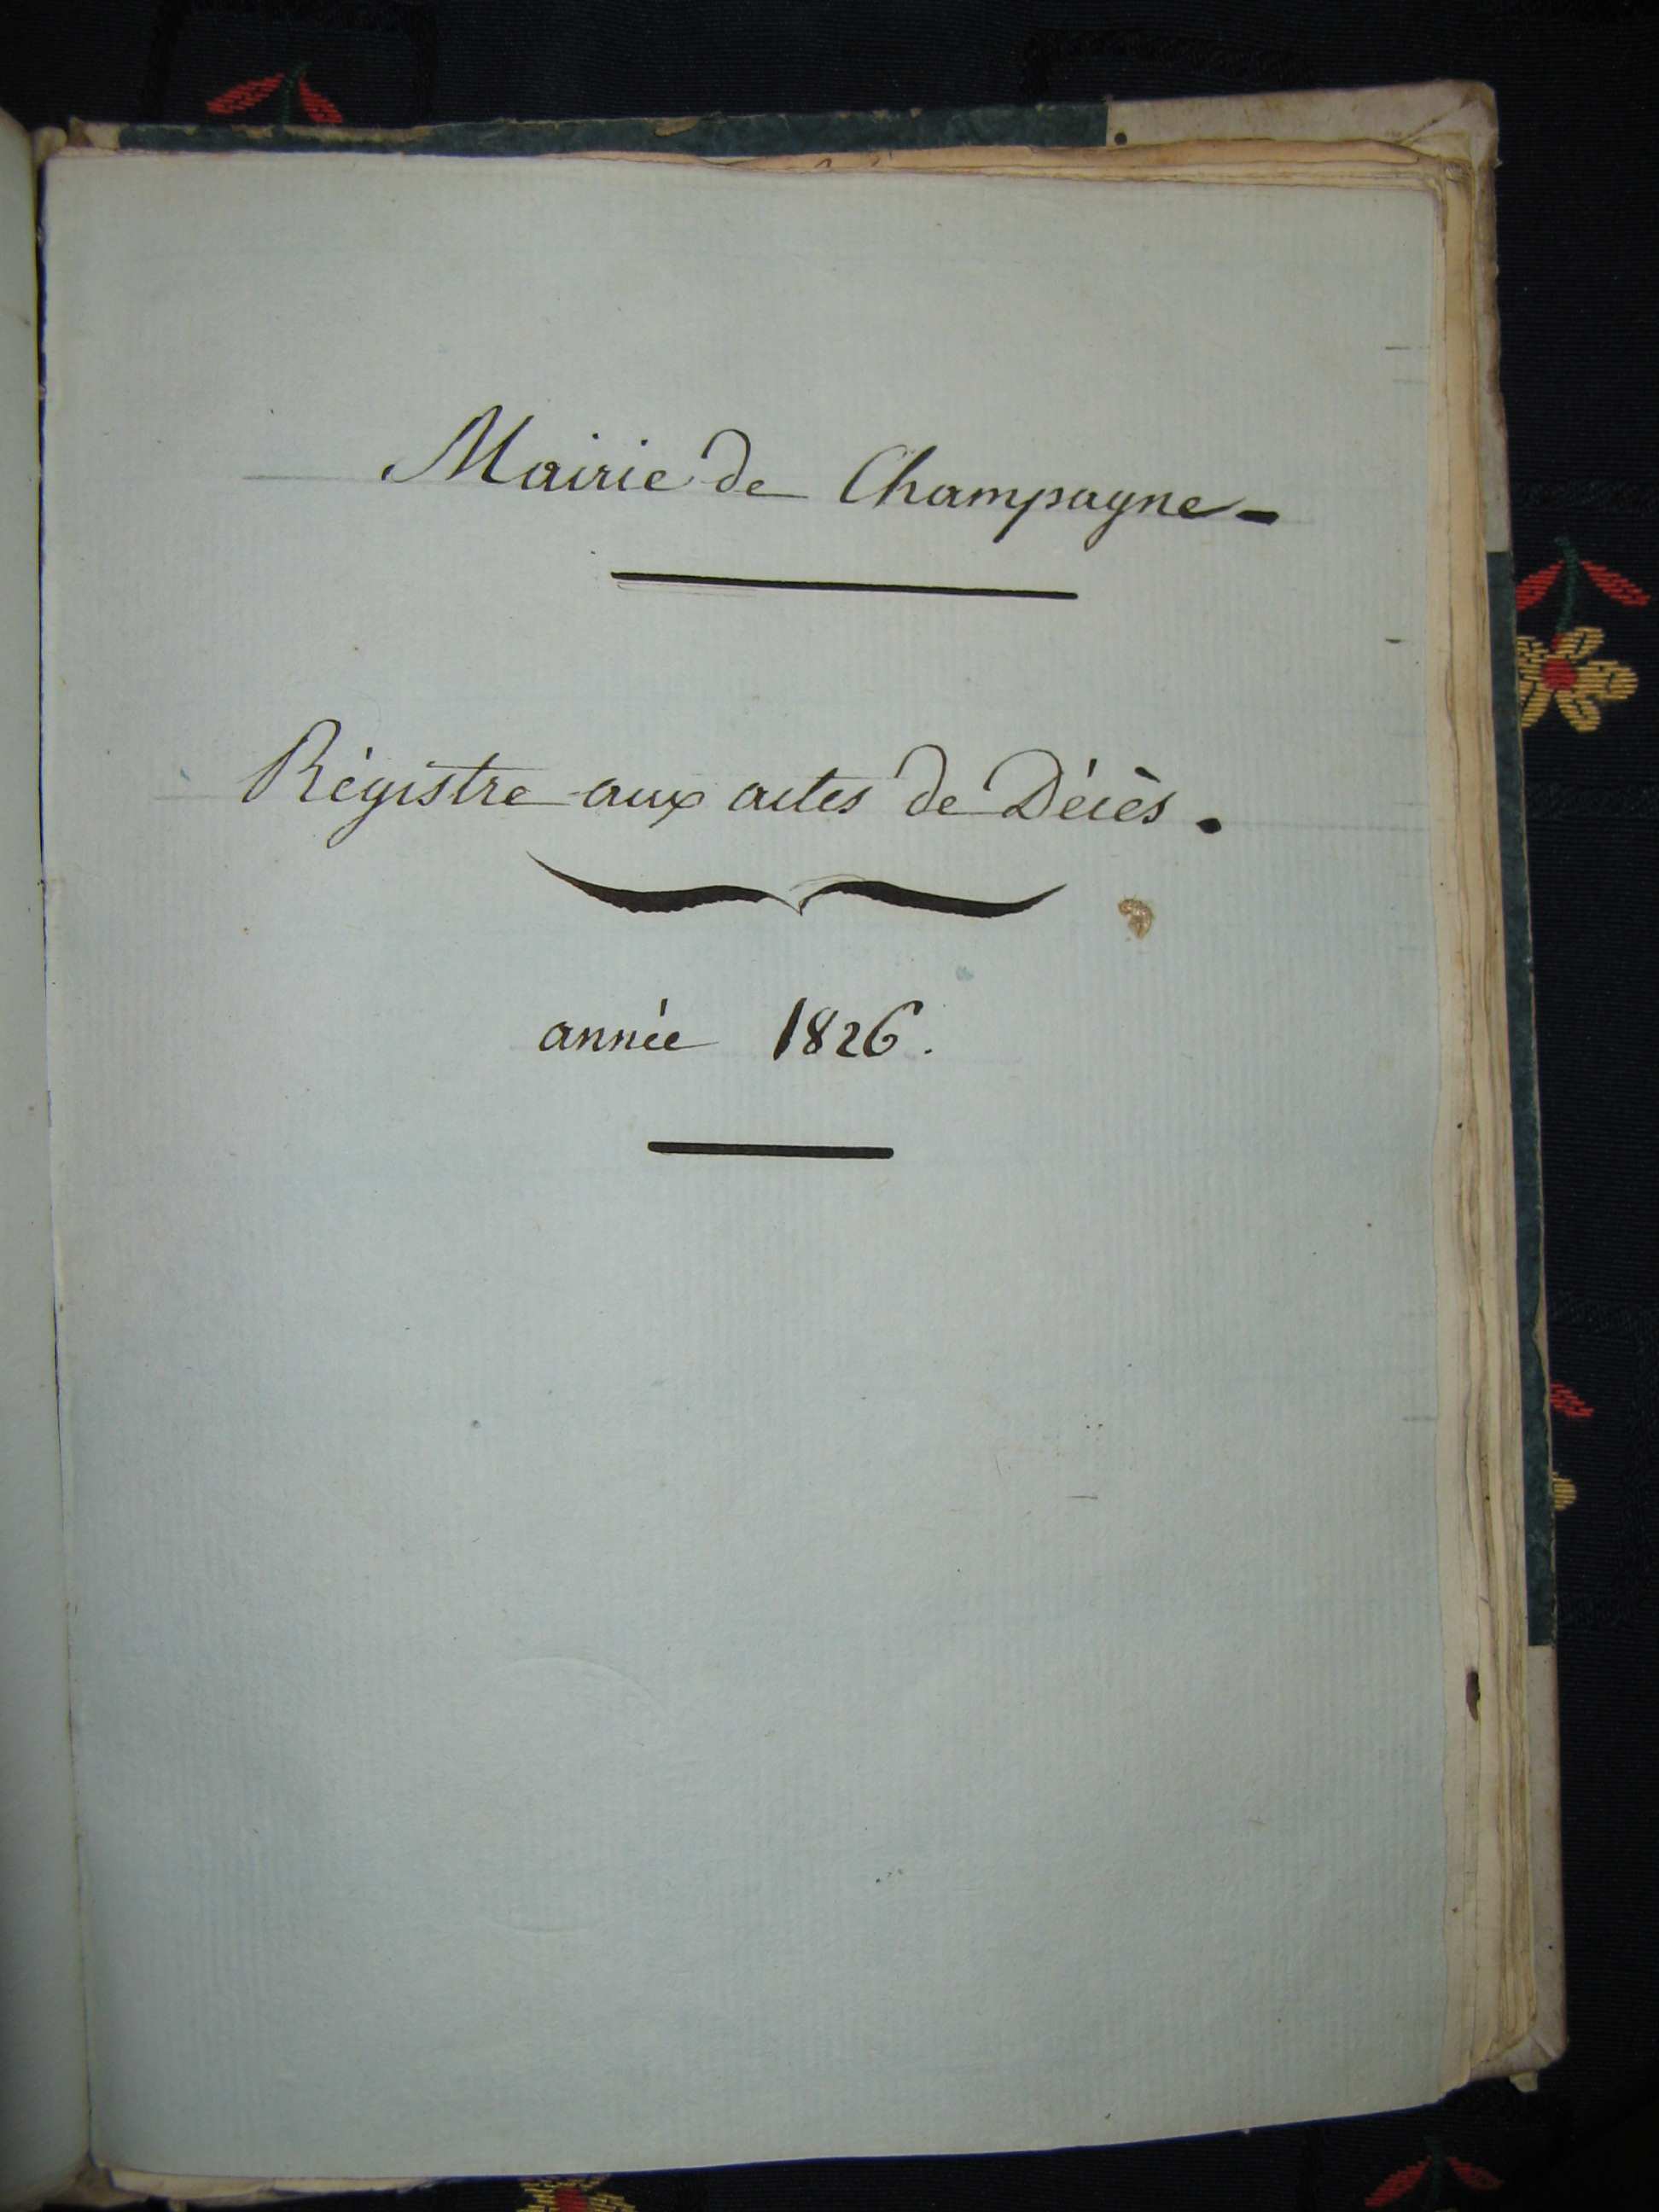 Mairie de Champagne-
Régistre aux actes de Décès.
année 1826.